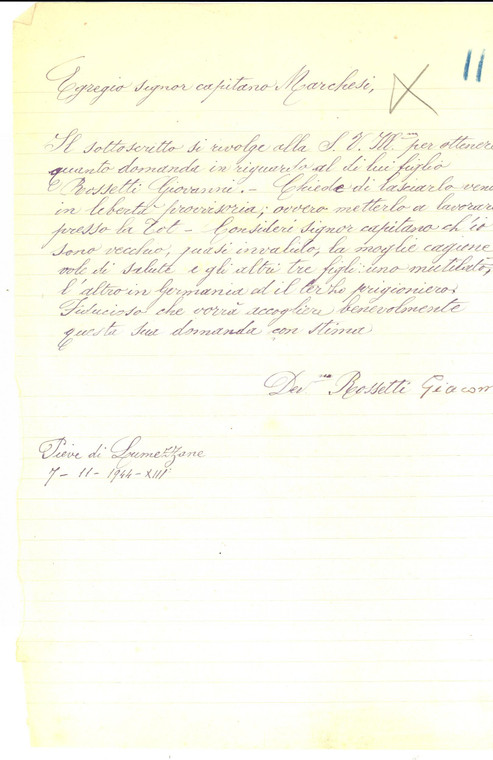 11
Egregio signor capitano Marchesi,
Il sottoscritto si rivolge alla S. V. Ill.ma per ottenere
quanto domanda in riguardo al di lui figlio
Rossetti Giovanni. - Chiede di lasciarlo veni
in libertà provvisoria; ovvero metterlo a lavorar
presso la Tot - Consideri signor capitano ch'io
sono vecchio, quasi invalido, la moglie cagione
vole di salute e gli altri tre figli: uno mutilato,
l'altro in Germania ed il terzo prigioniero.
Fiducioso che vorrà accogliere benevolmente
questa sua domanda con stima
Dev.mo Rossetti Giacom
Pieve di Lumezzane
7-11-1944-XIII